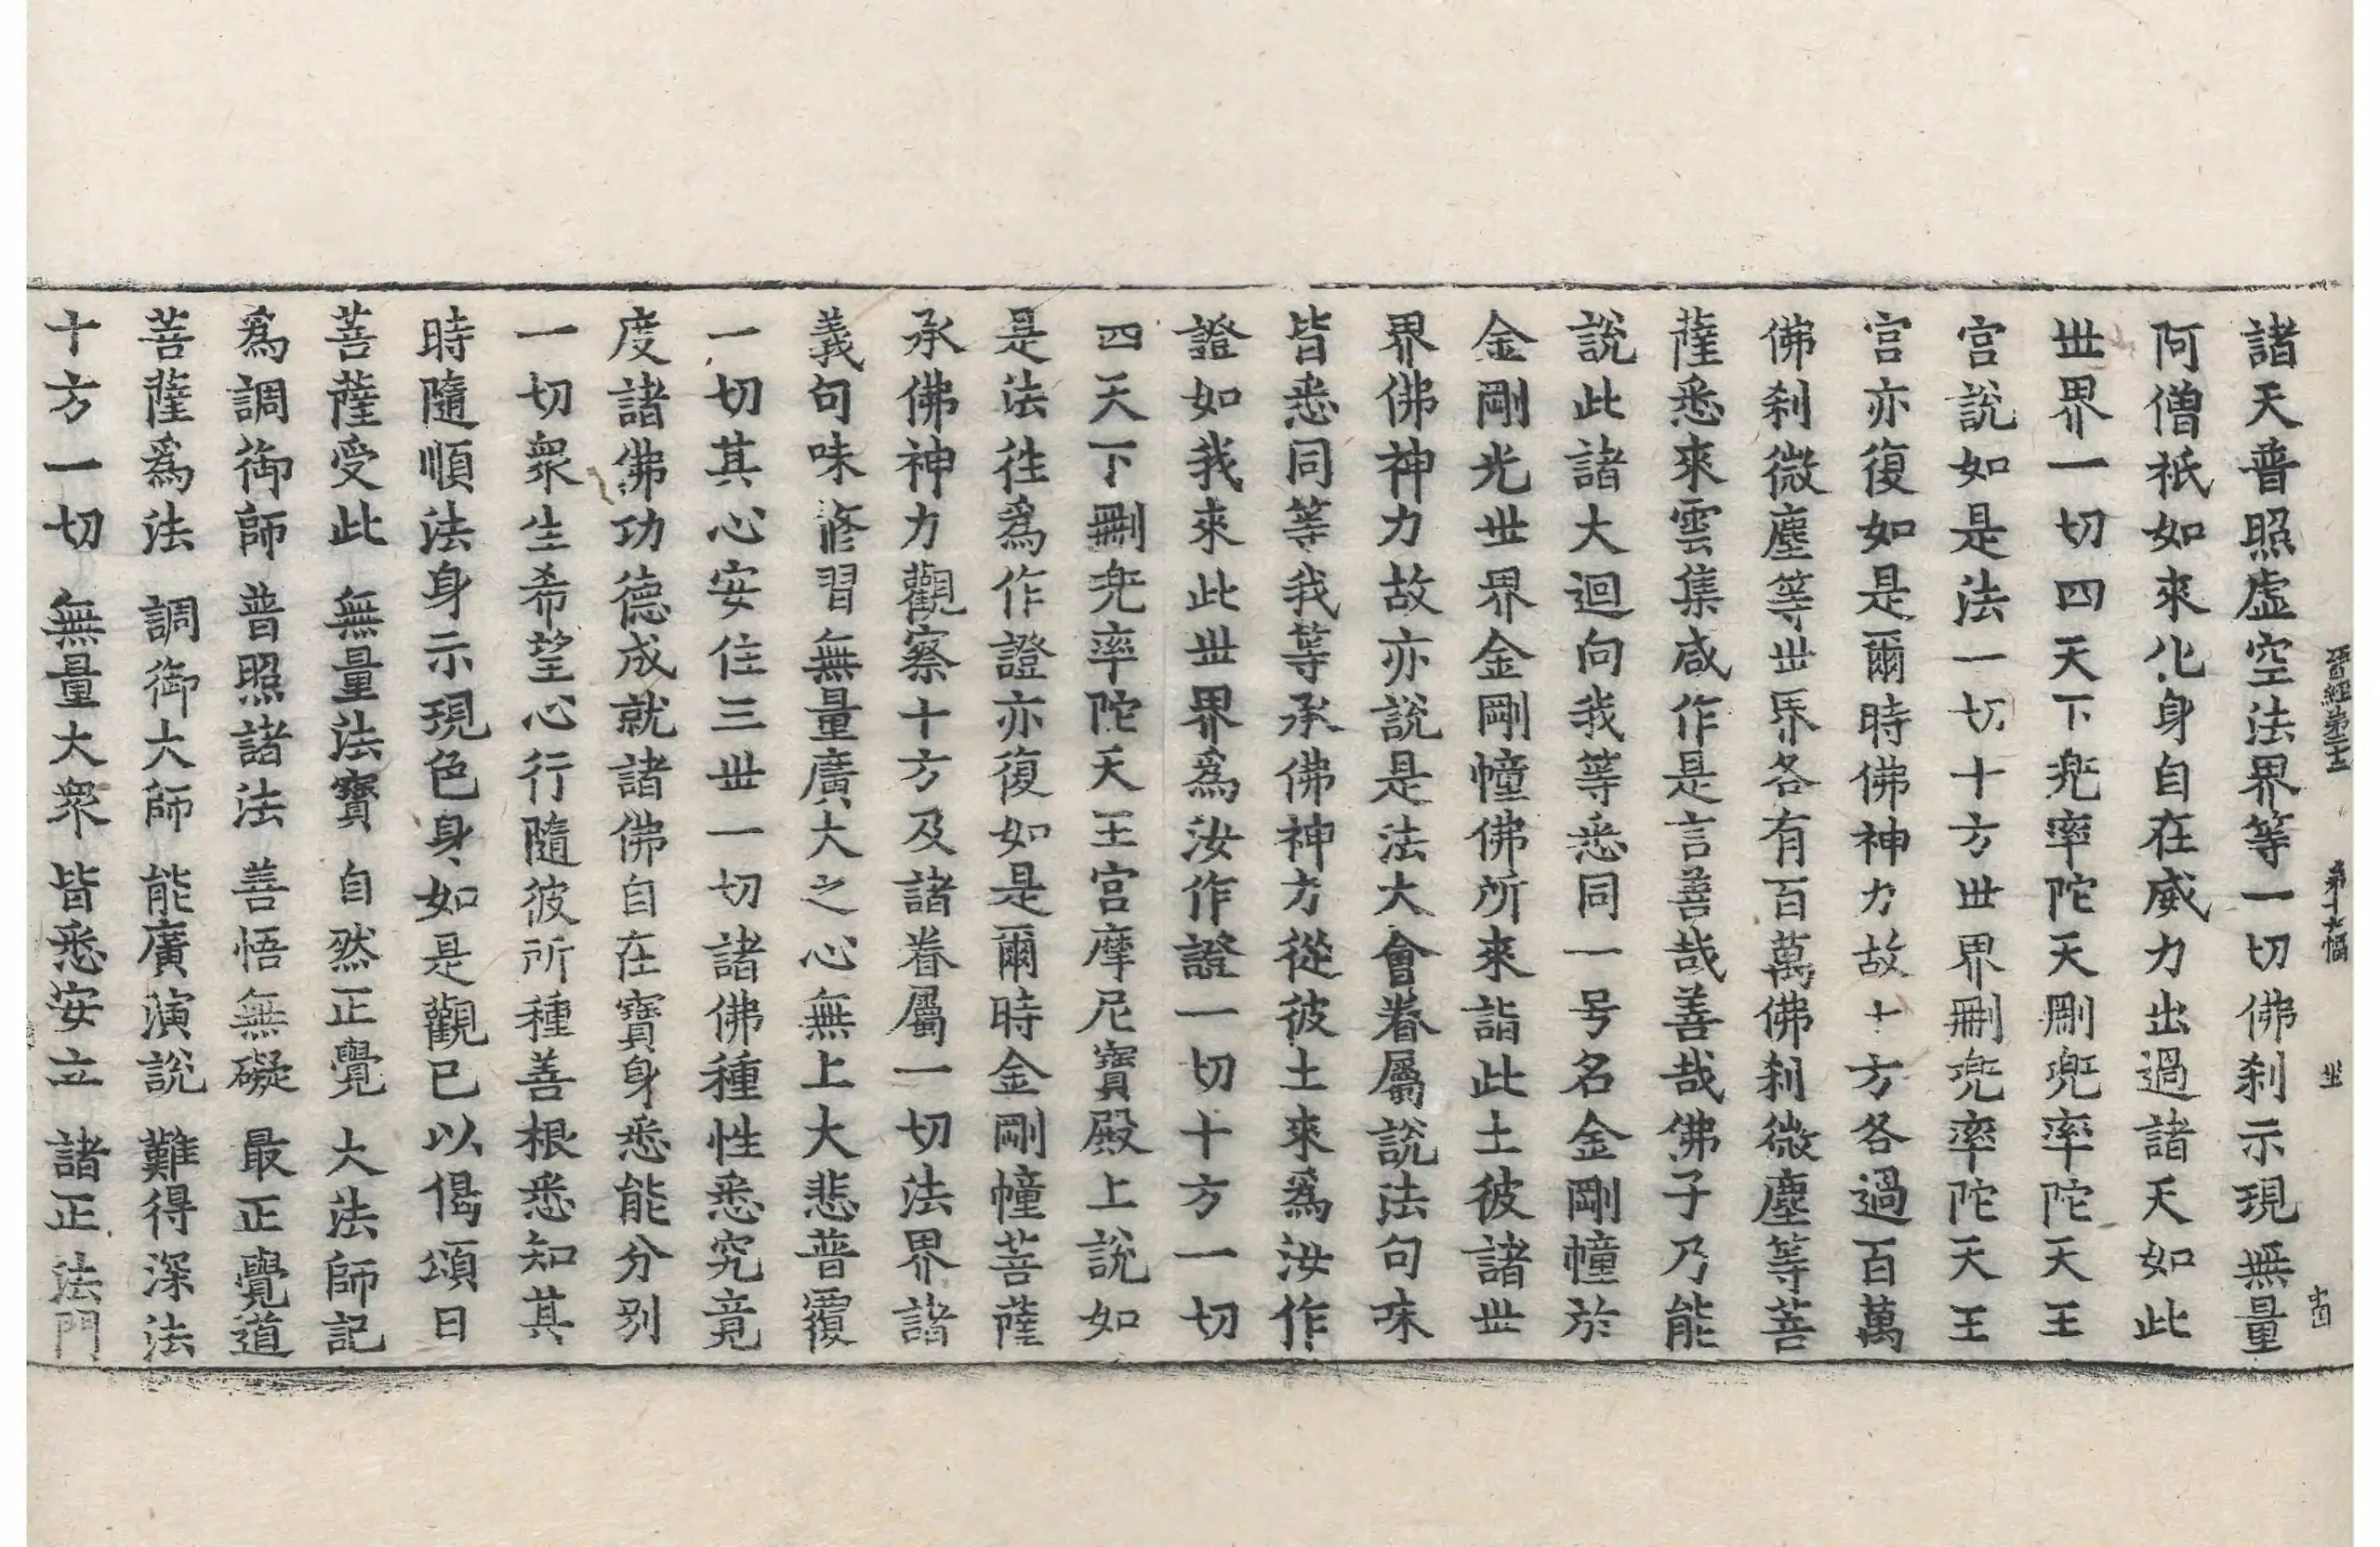 晉經第十五　第十六幅　丗　岀
諸天普照虛空法界等一切佛刹示現無量
阿僧祇如來化身自在威力出過諸天如此
丗界一切四天下兠率陀天刪兜率陀天王
宮說如是法一切十方丗界刪兜率陀天王
宮亦復如是爾時佛神力故十方各過百萬
佛刹微塵等丗界各有百萬佛刹微塵等菩
薩悉來雲集咸作是言善哉善哉佛子乃能
說此諸大迴向我等悉同一号名金剛幢於
金剛光丗界金剛幢佛所來詣此土彼諸丗
界佛神力故亦說是法大會眷屬說法句味
皆悉同等我等承佛神力從彼土來爲汝作
證如我來此丗界爲汝作證一切十方一切
四天下刪兜率陀天王宮摩尼寶殿上說如
是法徃爲作證亦復如是爾時金剛幢菩薩
承佛神力觀察十方及諸眷屬一切法界諸
義句味修習無量廣大之心無上大悲普覆
一切其心安住三丗一切諸佛種性悉究竟
度諸佛功德成就諸佛自在寶身悉能分別
一切衆生希望心行隨彼所種善根悉知其
時隨順法身示現色身如是觀已以偈頌曰
菩薩受此　無量法寶　自然正覺　大法師記
爲調御師　普照諸法　善悟無礙　最正覺道
菩薩爲法　調御大師　能廣演說　難得深法
十方一切　無量大衆　皆悉安立　諸正法門